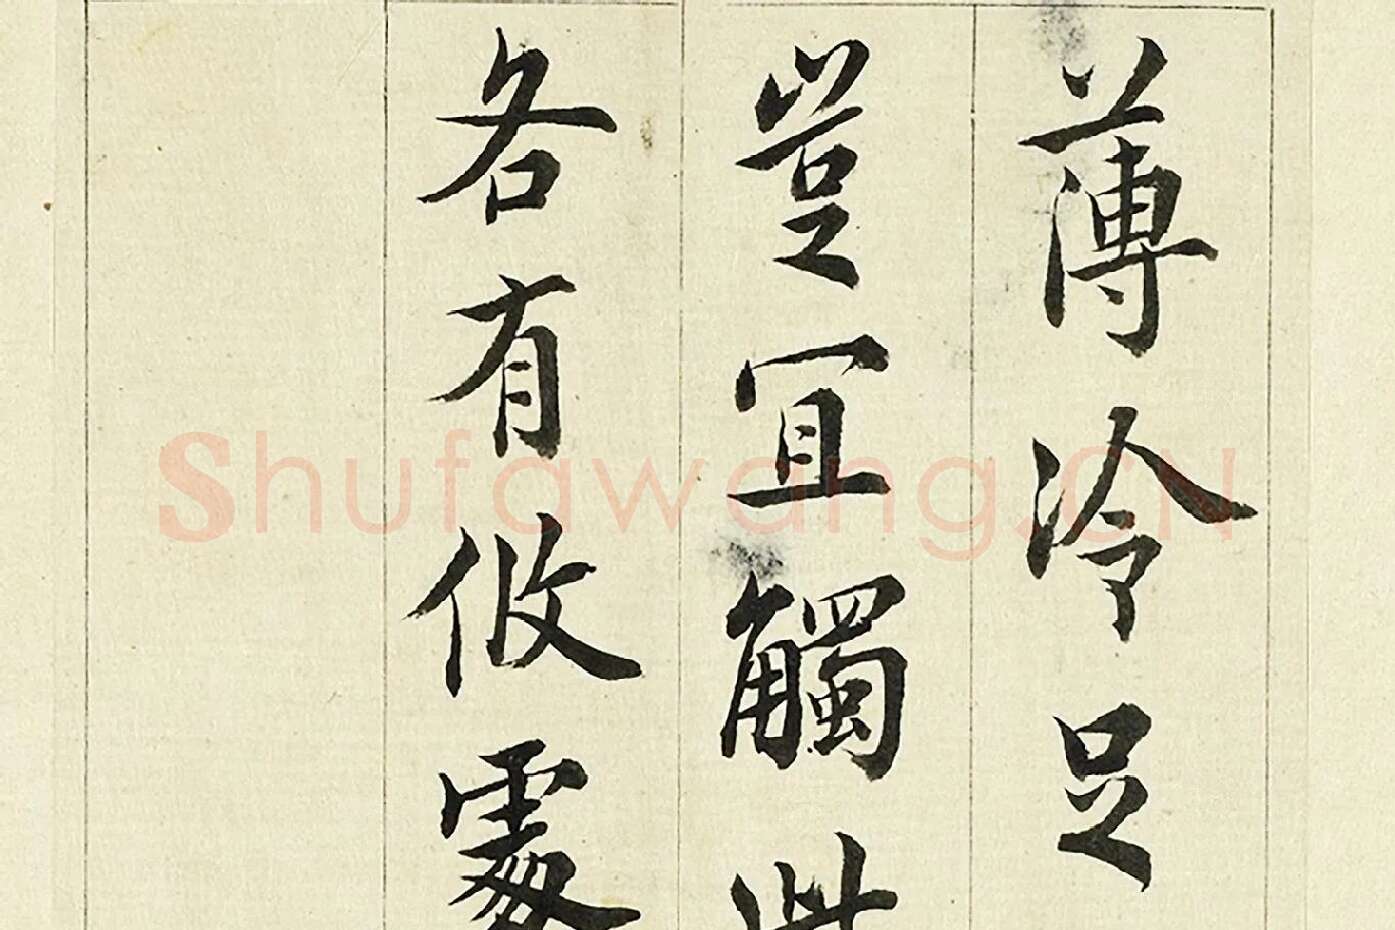 薄冷足
豈宜觸此
各有攸處
Shufawang.CN